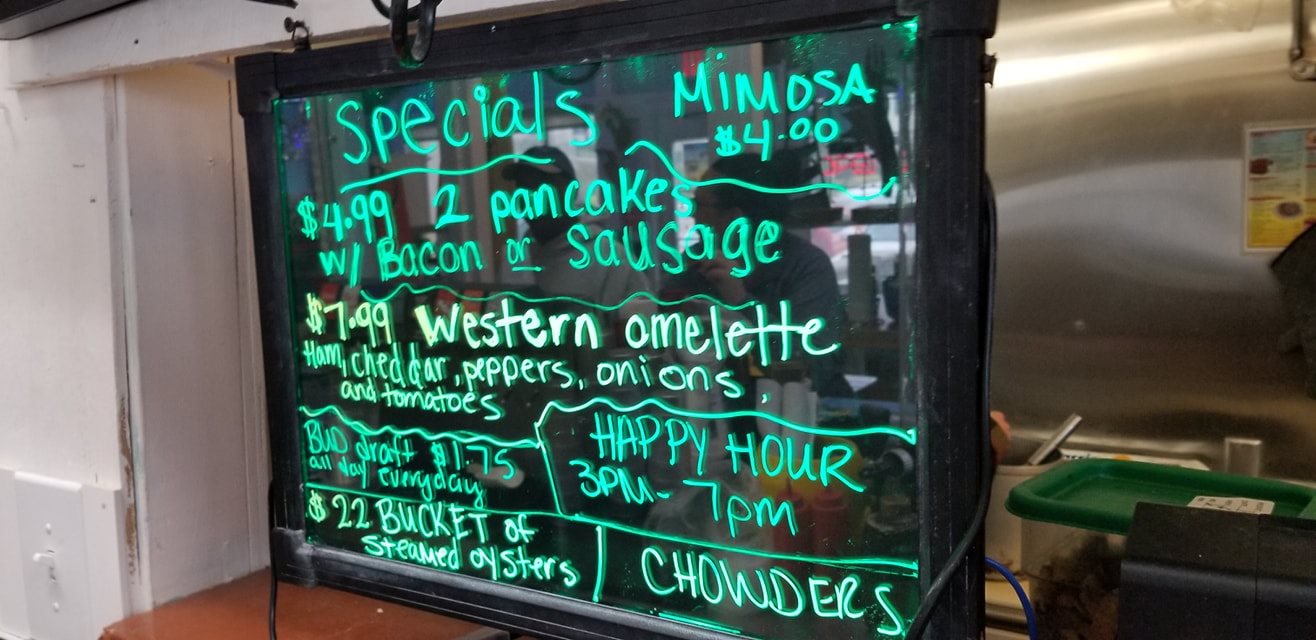 Specials
MiMOSA
$4.00
$4.99 2 pancakes
w/ Bacon or Sausage
$7.99 Western omelette
Ham, cheddar, peppers, onions,
and tomatoes
BUD draft $1.75
all day everyday
HAPPY HOUR
3PM- 7pm
$22 BUCKET of
steamed oysters
CHOWDERS